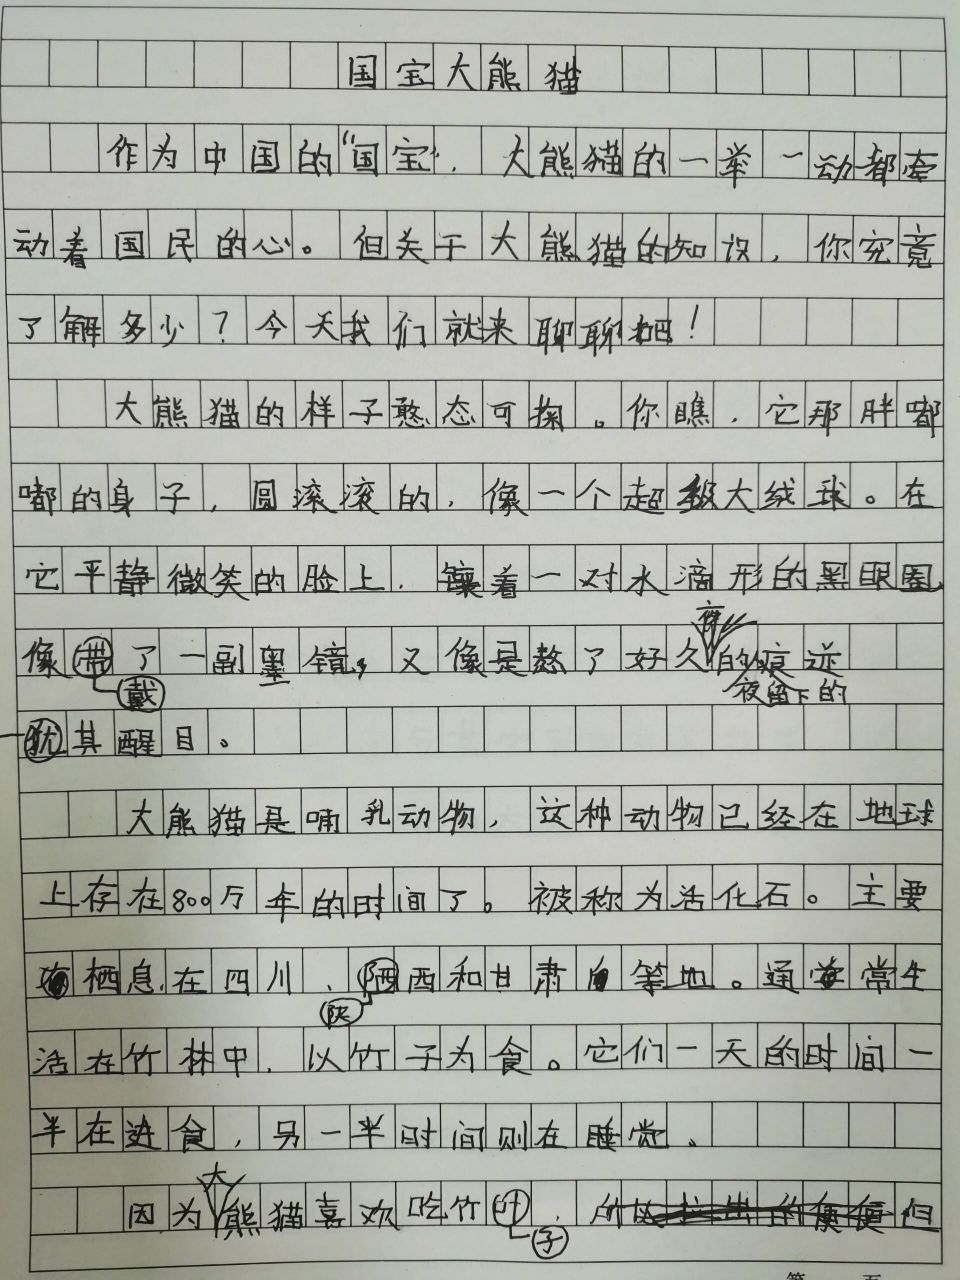 国宝大熊猫
作为中国的“国宝”，大熊猫的一举一动都牵
动着国民的心。但关于大熊猫的知识，你究竟
了解多少？今天我们就来聊聊吧！
大熊猫的样子憨态可掬。你瞧，它那胖嘟
嘟的身子，圆滚滚的，像一个超级大绒球。在
它平静微笑的脸上，镶着一对水滴形的黑眼圈，
像带了一副墨镜，又像是熬了好久的痕迹
戴
夜留下的
犹其醒目。
大熊猫是哺乳动物，这种动物已经在地球
上存在800万年的时间了。被称为活化石。主要
栖息在四川、陕西和甘肃等地。通常生
陕
活在竹林中，以竹子为食。它们一天的时间一
半在进食，另一半时间则在睡觉。
因为大熊猫喜欢吃竹叶，所以拉出的便便但
子